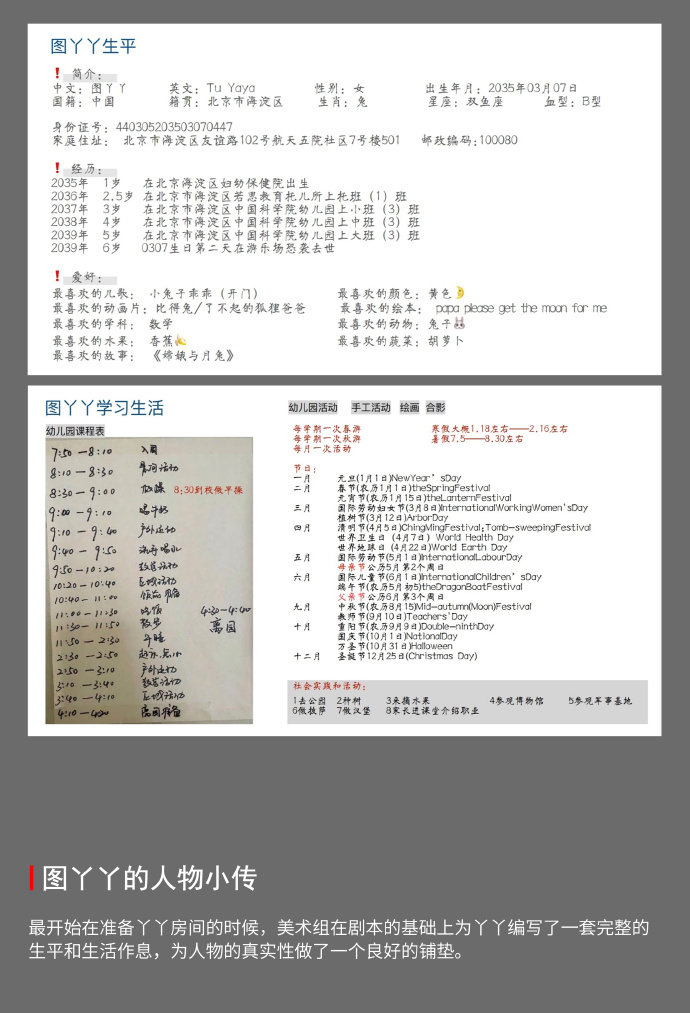 图丫丫生平
! 简介:
中文: 图丫丫 英文: Tu Yaya 性别: 女 出生年月: 2035年03月07日
国籍: 中国 籍贯: 北京市海淀区 生肖: 兔 星座: 双鱼座 血型: B型
身份证号: 440305203503070447
家庭住址: 北京市海淀区友谊路102号航天五院社区7号楼501 邮政编码:100080
! 经历:
2035年 1岁 在北京海淀区妇幼保健院出生
2036年 2.5岁 在北京市海淀区若思教育托儿所上托班(1)班
2037年 3岁 在北京市海淀区中国科学院幼儿园上小班(3)班
2038年 4岁 在北京市海淀区中国科学院幼儿园上中班(3)班
2039年 5岁 在北京市海淀区中国科学院幼儿园上大班(3)班
2039年 6岁 0307生日第二天在游乐场恐袭去世
! 爱好:
最喜欢的儿歌: 小兔子乖乖(开门) 最喜欢的颜色: 黄色🌛
最喜欢的动画片: 比得兔/了不起的狐狸爸爸 最喜欢的绘本: papa please get the moon for me
最喜欢的学科: 数学 最喜欢的动物: 兔子🐰
最喜欢的水果: 香蕉🍌 最喜欢的蔬菜: 胡萝卜
最喜欢的故事: 《嫦娥与月兔》
图丫丫学习生活
幼儿园课程表
7:50—8:10 入园
8:10—8:30 晨间活动
8:30—9:00 做操 8:30到校做早操
9:00—9:10 喝牛奶
9:10—9:40 户外活动
9:40—9:50 洗手喝水
9:50—10:20 教学活动
10:20—10:40 区域活动
10:40—11:00 饭前准备
11:00—11:30 吃饭 4:30-4:40
11:30—11:50 散步 离园
11:50—2:30 午睡
2:30—2:50 起床
2:50—3:10 户外活动
3:10—3:40 教学活动
3:40—4:10 区域活动
4:10—4:20 离园准备
幼儿园活动 手工活动 绘画 合影
每学期一次春游 寒假大概1.18左右——2.16左右
每学期一次秋游 暑假7.5——8.30左右
每月一次活动
节日:
一月 元旦(1月1日)NewYear’sDay
二月 春节(农历1月1日)theSpringFestival
元宵节(农历1月15日)theLanternFestival
三月 国际劳动妇女节(3月8日)InternationalWorkingWomen'sDay
植树节(3月12日)ArborDay
四月 清明节(4月5日)ChingMingFestival;Tomb-sweepingFestival
世界卫生日(4月7日) World Health Day
世界地球日(4月22日)World Earth Day
五月 国际劳动节(5月1日)InternationalLabourDay
母亲节公历5月第2个周日
六月 国际儿童节(6月1日)InternationalChildren’sDay
端午节(农历5月初5)theDragonBoatFestival
父亲节公历6月第3个周日
九月 中秋节(农历8月15)Mid-autumn(Moon)Festival
教师节(9月10日)Teachers'Day
十月 重阳节(农历9月9日)Double-ninthDay
国庆节(10月1日)NationalDay
万圣节(10月31日)Halloween
十二月 圣诞节12月25日(Christmas Day)
社会实践和活动:
1去公园 2种树 3采摘水果 4参观博物馆 5参观军事基地
6做披萨 7做汉堡 8家长进课堂介绍职业
图丫丫的人物小传
最开始在准备丫丫房间的时候，美术组在剧本的基础上为丫丫编写了一套完整的
生平和生活作息，为人物的真实性做了一个良好的铺垫。